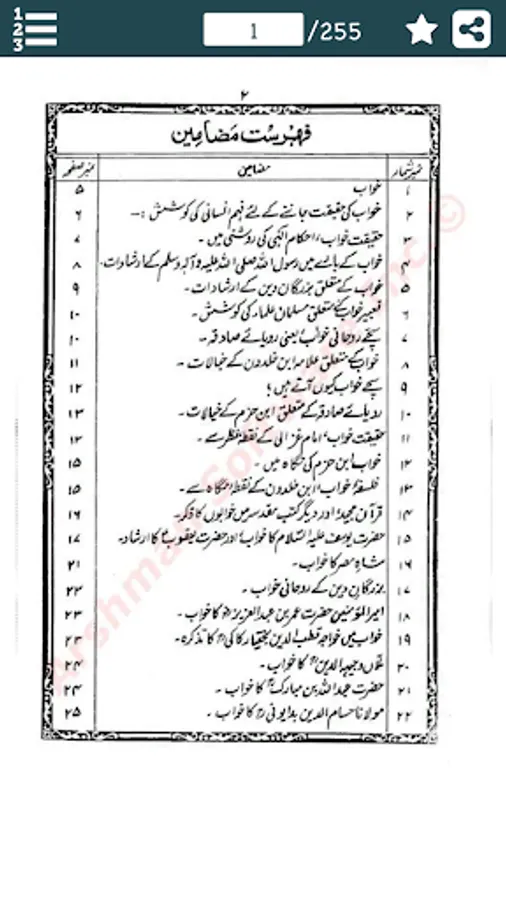 1
2
3
1 /255
۲
فہرست مضامین
نمبر شمار مضامین نمبر صفحہ
۱ خواب ۵
۲ خواب کی حقیقت جاننے کے لئے فہم انسانی کی کوشش :— ۶
۳ حقیقت خواب، احکام الٰہی کی روشنی میں - ۷
۴ خواب کے بارے میں رسول اللہ صلی اللہ علیہ وآلہ وسلم کے ارشادات - ۸
۵ خواب کے متعلق بزرگان دین کے ارشادات - ۹
۶ تعبیر خواب کے متعلق مسلمان علماء کی کوشش - ۱۰
۷ سچے روحانی خواب یعنی رویائے صادقہ - ۱۰
۸ خواب کے متعلق علامہ ابن خلدون کے خیالات - ۱۱
۹ سچے خواب کیوں آتے ہیں؟ ۱۲
۱۰ رویائے صادقہ کے متعلق ابن حزم کے خیالات - ۱۳
۱۱ حقیقت خواب، امام غزالی کے نقطۂ نظر سے - ۱۴
۱۲ خواب ابن حزم کی نگاہ میں - ۱۵
۱۳ فلسفۂ خواب، ابن خلدون کے نقطۂ نگاہ سے - ۱۵
۱۴ قرآن مجید اور دیگر کتب مقدسہ میں خوابوں کا ذکر - ۱۶
۱۵ حضرت یوسف علیہ السلام کا خواب اور حضرت یعقوبؑ کا ارشاد - ۱۷
۱۶ شاہ مصر کا خواب - ۲۱
۱۷ بزرگان دین کے روحانی خواب - ۲۳
۱۸ امیر المؤمنین حضرت عمر بن عبد العزیزؒ کا خواب - ۲۳
۱۹ خواب میں خواجہ قطب الدین بختیار کاکیؒ کا تذکرہ - ۲۳
۲۰ وجیہہ الدینؒ کا خواب - ۲۴
۲۱ حضرت عبد اللہ بن مبارکؒ کا خواب - ۲۴
۲۲ مولانا حسام الدین بدایونیؒ کا خواب - ۲۵
Arshman Solutions Inc ©